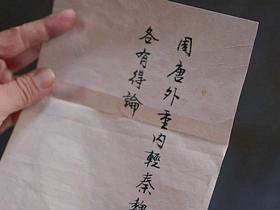 周唐外重内輕秦魏
各有得論